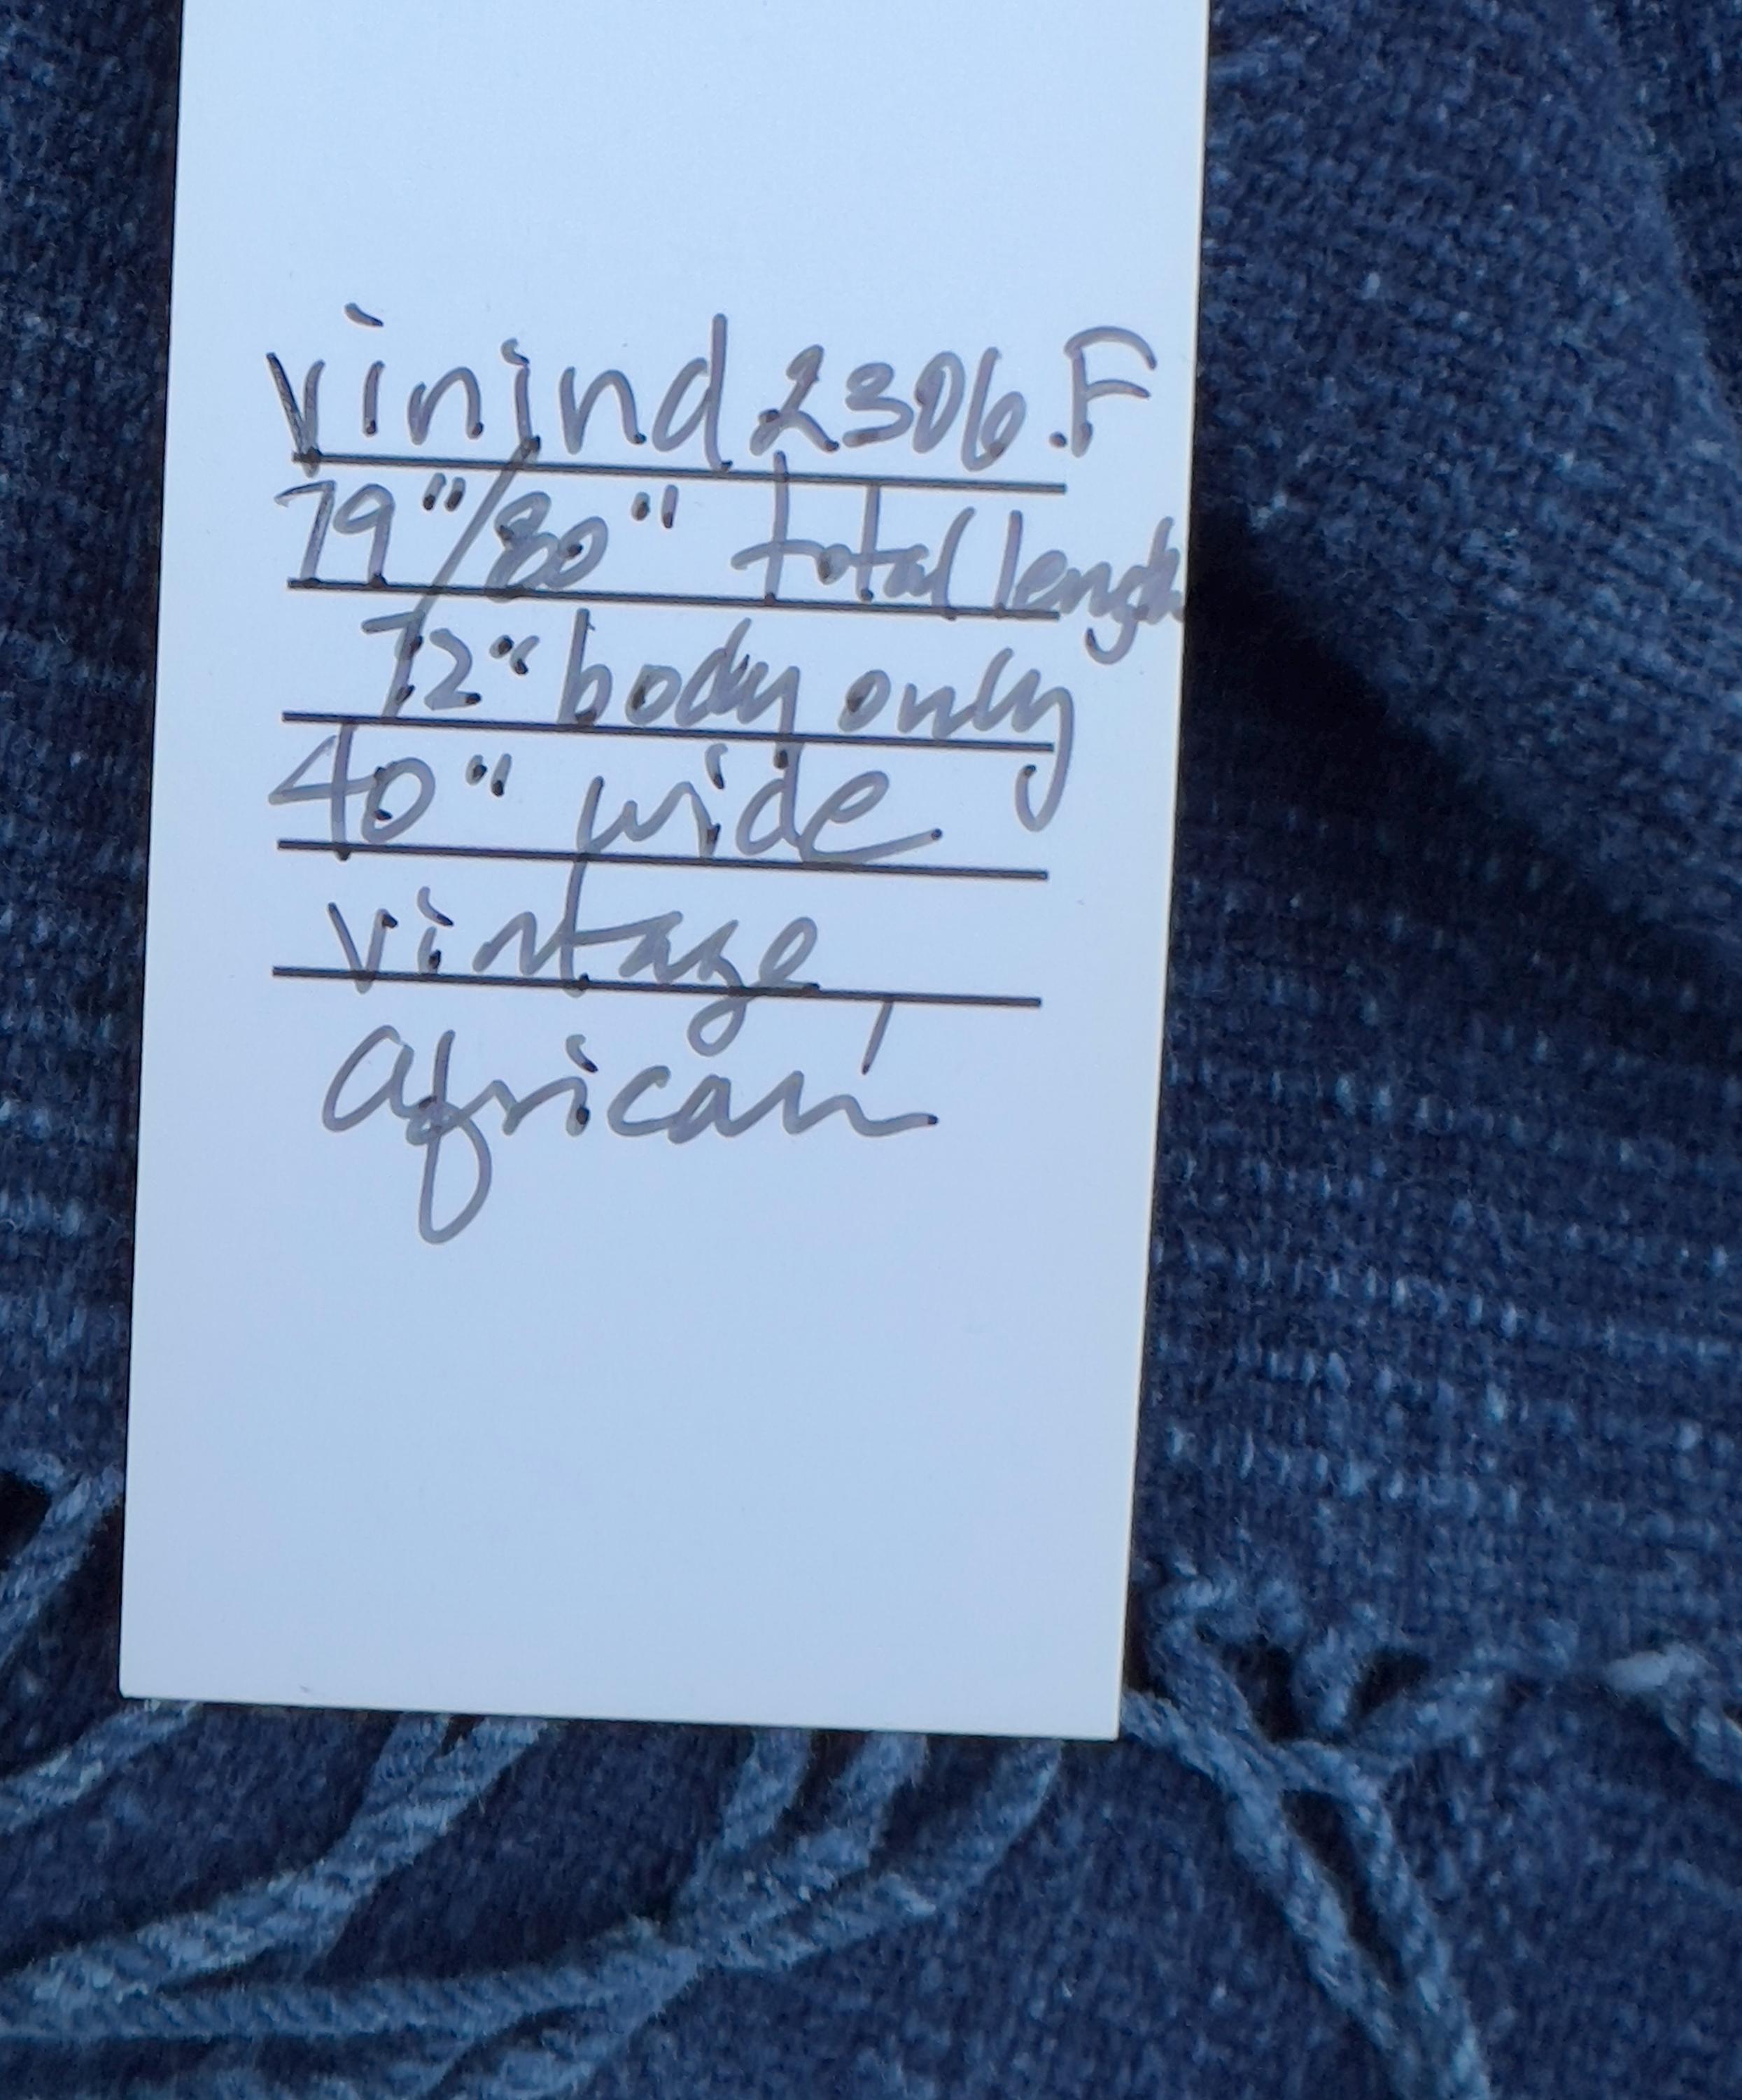 vinind2306.F
79"/80" total length
72" body only
40" wide
vintage,
african